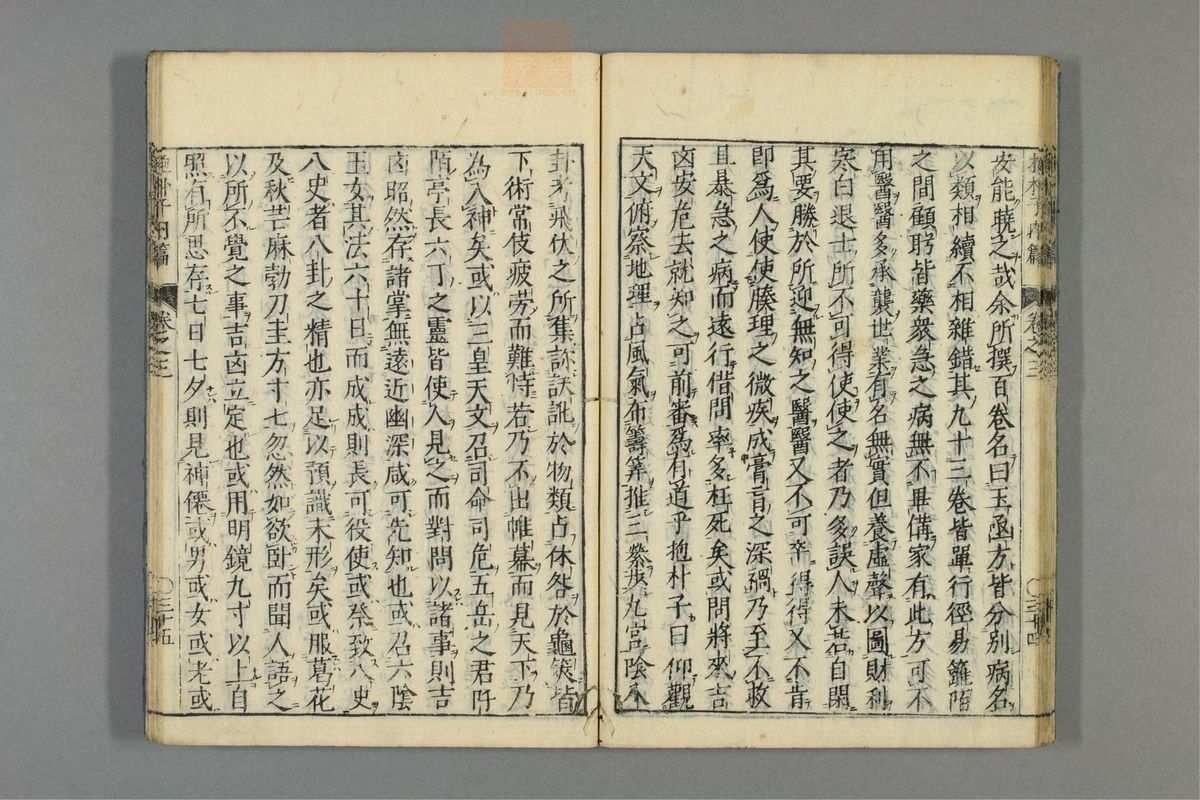 安能曉之哉余所撰百卷名曰玉函方皆分別病名
以類相續不相雜錯其九十三卷皆單行徑易籬陌
之間顧眄皆藥衆急之病無不畢備家有此方可不
用醫醫多承襲世業有名無實但養虛聲以圖財利
寒白退士所不可得使使之者乃多誤人未若自閑
其要勝於所迎無知之醫醫又不可卒得得又不肯
即爲人使使腠理之微疾成膏肓之深禍乃至不救
且暴急之病而遠行借問率多枉死矣或問將來吉
凶安危去就知之可前審爲有道乎抱朴子曰仰觀
天文俯察地理占風氣布籌筭推三棊步九宮
卦考飛伏之所集訞訛於物類占休咎於龜筴皆
下術常伎疲劳而難恃若乃不出帷幕而見天下乃
為入神矣或以三皇天文召司命司危五岳之君阡
陌亭長六丁之靈皆使人見之而對問以諸事則吉
凶昭然存諸掌無遠近幽深咸可先知也或召六陰
玉女其法六十日而成成則長可役使或祭致八史
八史者八卦之精也亦足以預識未形矣或服葛花
及秋芒麻勃刀圭方寸七忽然如欲卧而聞人語之
以所不覺之事吉凶立定也或用明鏡九寸以上自
照有所思存七日七夕則見神僊或男或女或老或
卷之三
三十四
内篇
卷之三
三十五